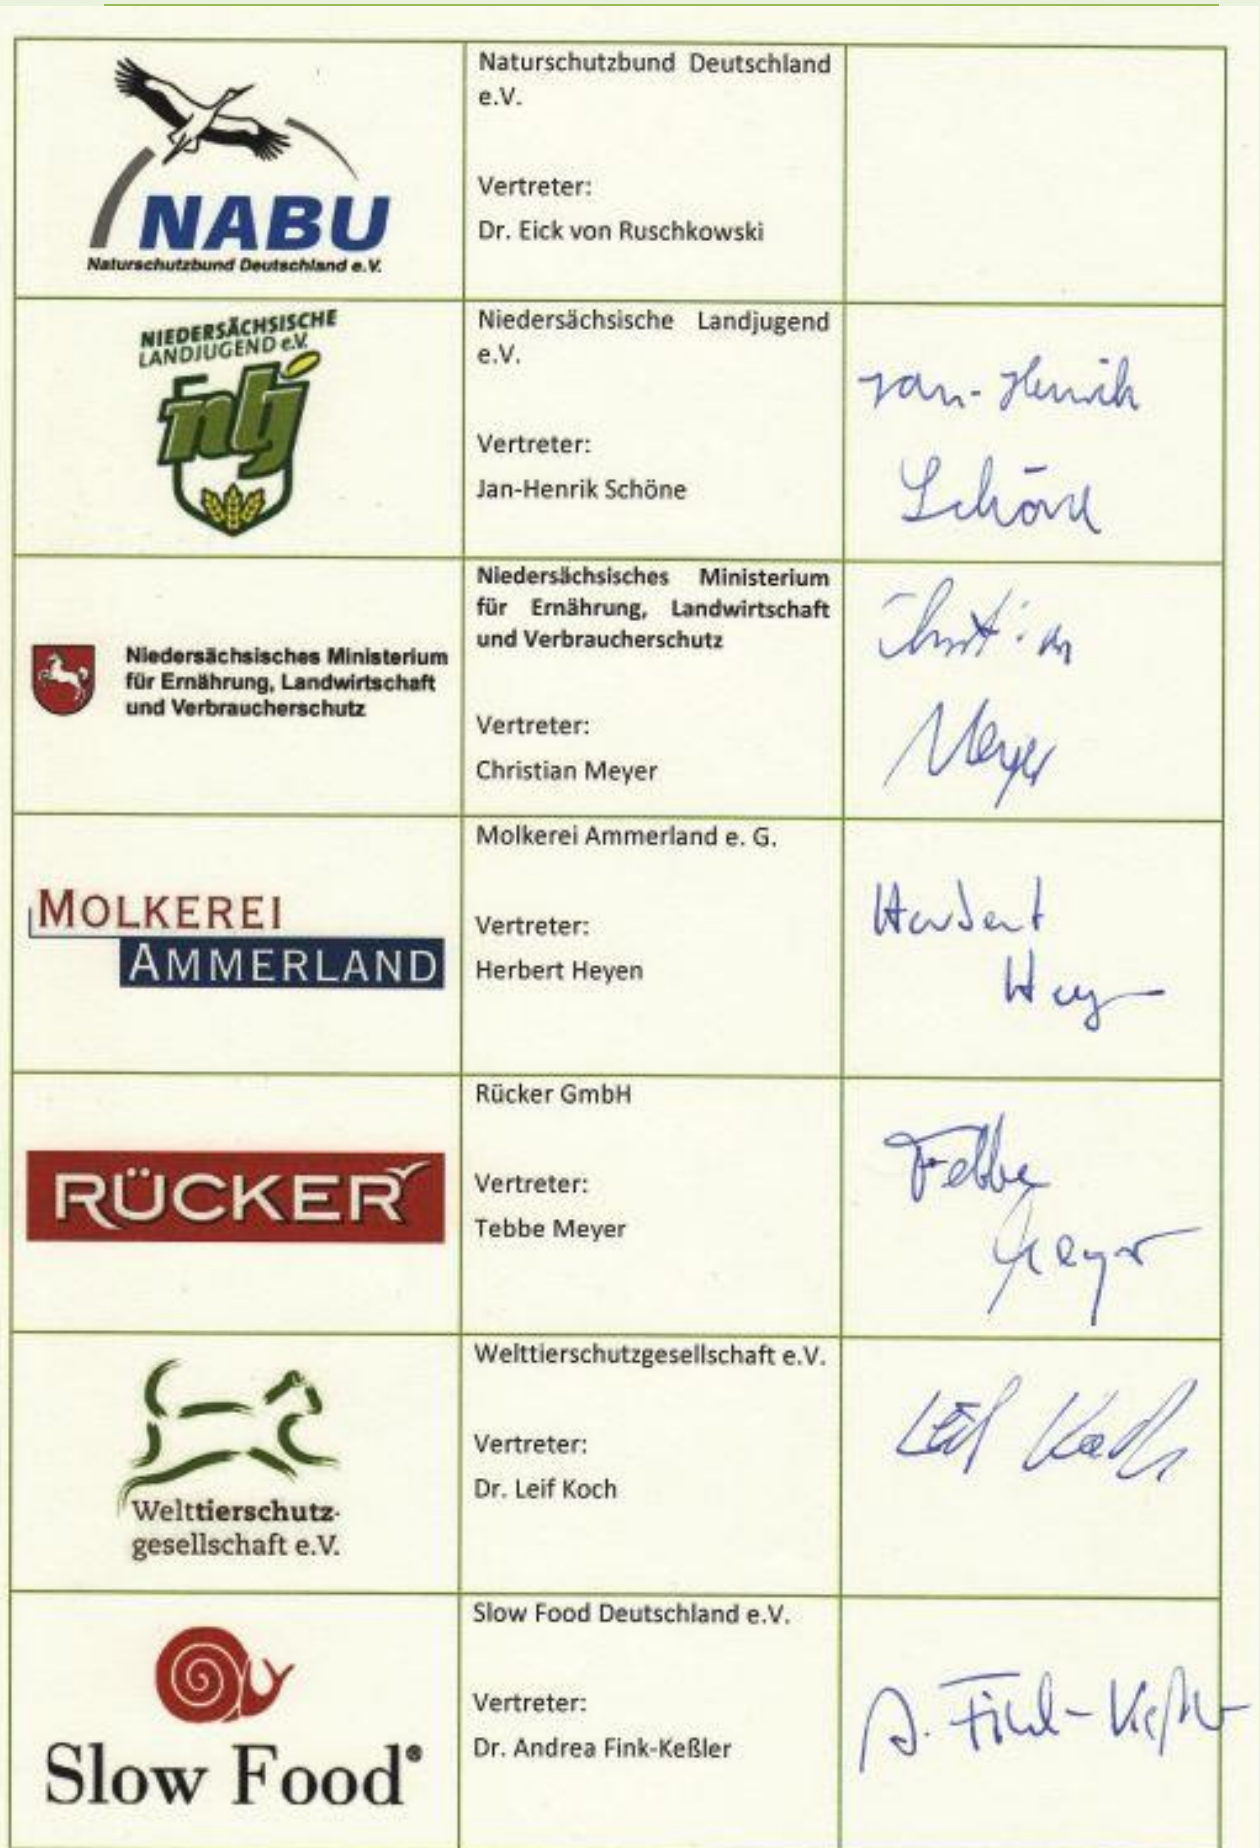 NABU
Naturschutzbund Deutschland e.V.
Naturschutzbund Deutschland
e.V.
Vertreter:
Dr. Eick von Ruschkowski
NIEDERSÄCHSISCHE
LANDJUGEND e.V.
nlj
Niedersächsische Landjugend
e.V.
Vertreter:
Jan-Henrik Schöne
Jan-Henrik
Schöne
Niedersächsisches Ministerium
für Ernährung, Landwirtschaft
und Verbraucherschutz
Niedersächsisches Ministerium
für Ernährung, Landwirtschaft
und Verbraucherschutz
Vertreter:
Christian Meyer
Christian
Meyer
MOLKEREI
AMMERLAND
Molkerei Ammerland e. G.
Vertreter:
Herbert Heyen
Herbert
Heyen
RÜCKER
Rücker GmbH
Vertreter:
Tebbe Meyer
Tebbe
Meyer
Welttierschutz-
gesellschaft e.V.
Welttierschutzgesellschaft e.V.
Vertreter:
Dr. Leif Koch
Leif Koch
Slow Food®
Slow Food Deutschland e.V.
Vertreter:
Dr. Andrea Fink-Keßler
A. Fink-Keßler